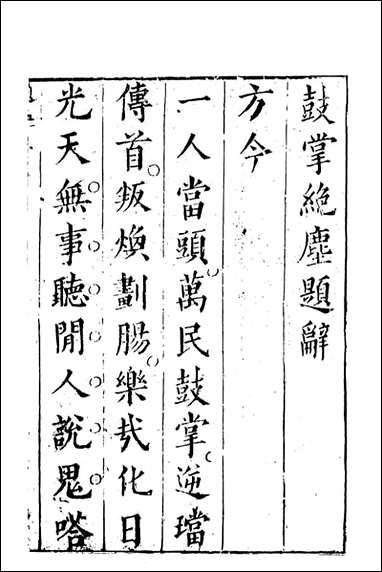 鼓掌絶塵題辭
方今
一人當頭萬民鼓掌逆璫
傳首叛煥劃腸樂㦲化日
光天無事聽閒人說鬼嗒